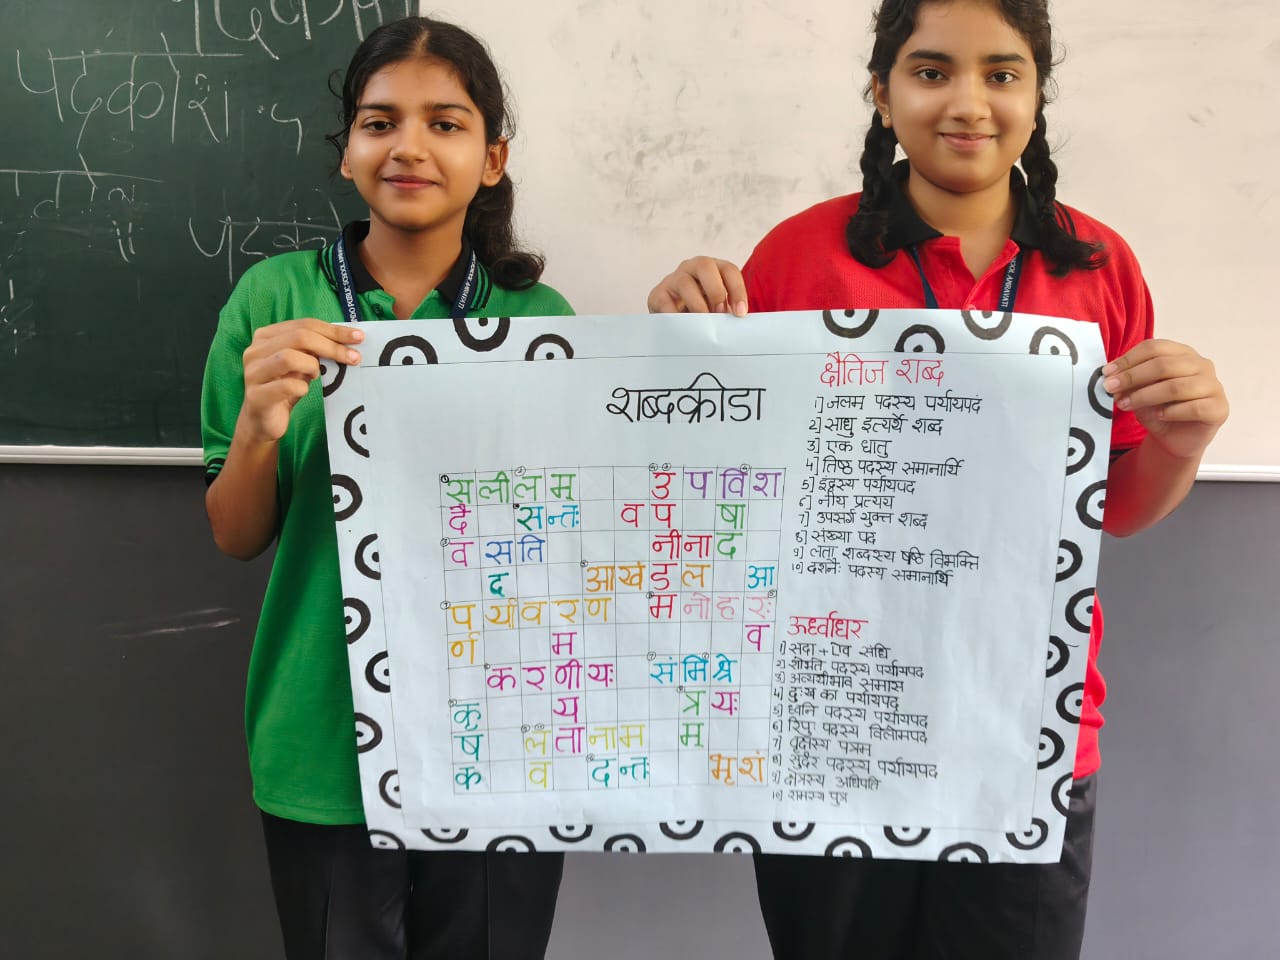 पदकोशः
शब्दक्रीडा
सलीलम् उपविश
दै सन्तः वप षा
वसति नीनाद
द आखंडल आ
पर्यावरण मनोहरः
र्ण म व
करणीयः संमिश्रे
कृ य त्रयः
ष लतानाम म्
क व दन्तः भृशं
क्षैतिज शब्द
1] जलम पदस्य पर्यायपदं
2] साधु इत्यर्थे शब्द
3] एक धातु
4] तिष्ठ पदस्य समानार्थि
5] इंद्रस्य पर्यायपद
6] नीय प्रत्यय
7] उपसर्ग युक्त शब्द
8] संख्या पद
9] लता शब्दस्य षष्ठि विभक्ति
10] दशनैः पदस्य समानार्थि
ऊर्ध्वाधर
1] सदा + एव संधि
2] शोभते पदस्य पर्यायपद
3] अव्ययीभाव समास
4] दुःख का पर्यायपद
5] ध्वनि पदस्य पर्यायपद
6] रिपु पदस्य विलोमपद
7] वृक्षस्य पत्रम
8] सुंदर पदस्य पर्यायपद
9] क्षेत्रस्य अधिपति
10] रामस्य पुत्र